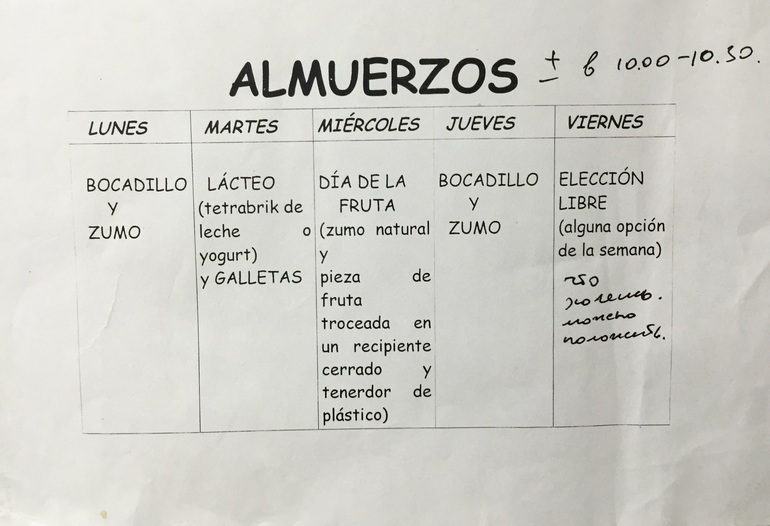 ALMUERZOS ± в 10.00-10.30.
LUNES MARTES MIÉRCOLES JUEVES VIERNES
BOCADILLO
Y
ZUMO
LÁCTEO
(tetrabrik de
leche o
yogurt)
y GALLETAS
DÍA DE LA
FRUTA
(zumo natural
y
pieza de
fruta
troceada en
un recipiente
cerrado y
tenerdor de
plástico)
BOCADILLO
Y
ZUMO
ELECCIÓN
LIBRE
(alguna opción
de la semana)
что
можно
положить.